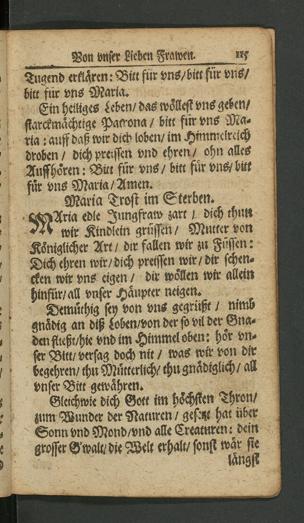 Von vnser Lieben Frawen. 115
Tugend erklären: Bitt für vns/ bitt für vns/
bitt für vns Maria.
Ein heiliges Leben/ das wöllest vns geben/
starckmächtige Patrona/ bitt für vns Ma-
ria: auff daß wir dich loben/ im Himmelreich
droben/ dich preissen vnd ehren/ ohn alles
Auffhören: Bitt für vns/ bitt für vns/ bitt
für vns Maria/ Amen.
Maria Trost im Sterben.
MAria edle Jungfraw zart/ dich thun
wir Kindlein grüssen/ Mutter von
Königlicher Art/ dir fallen wir zu Füssen:
Dich ehren wir/ dich preissen wir/ dir schen-
cken wir vns eigen/ dir wöllen wir allein
hinfür/ all vnser Häupter neigen.
Demütig sey von vns gegrüßt/ nimb
gnädig an diß Loben/ von der so vil der Gna-
den fließt/ hie vnd im Himmel oben: hör vn-
ser Bitt/ versag doch nit/ was wir von dir
begehren/ thu Mütterlich/ thu gnädiglich/ all
vnser Bitt gewähren.
Gleichwie dich Gott im höchsten Thron/
zum Wunder der Naturen/ gesetzt hat über
Sonn vnd Mond/ vnd alle Creaturen: dein
grosser G'walt/ die Welt erhalt/ sonst wär sie
längst